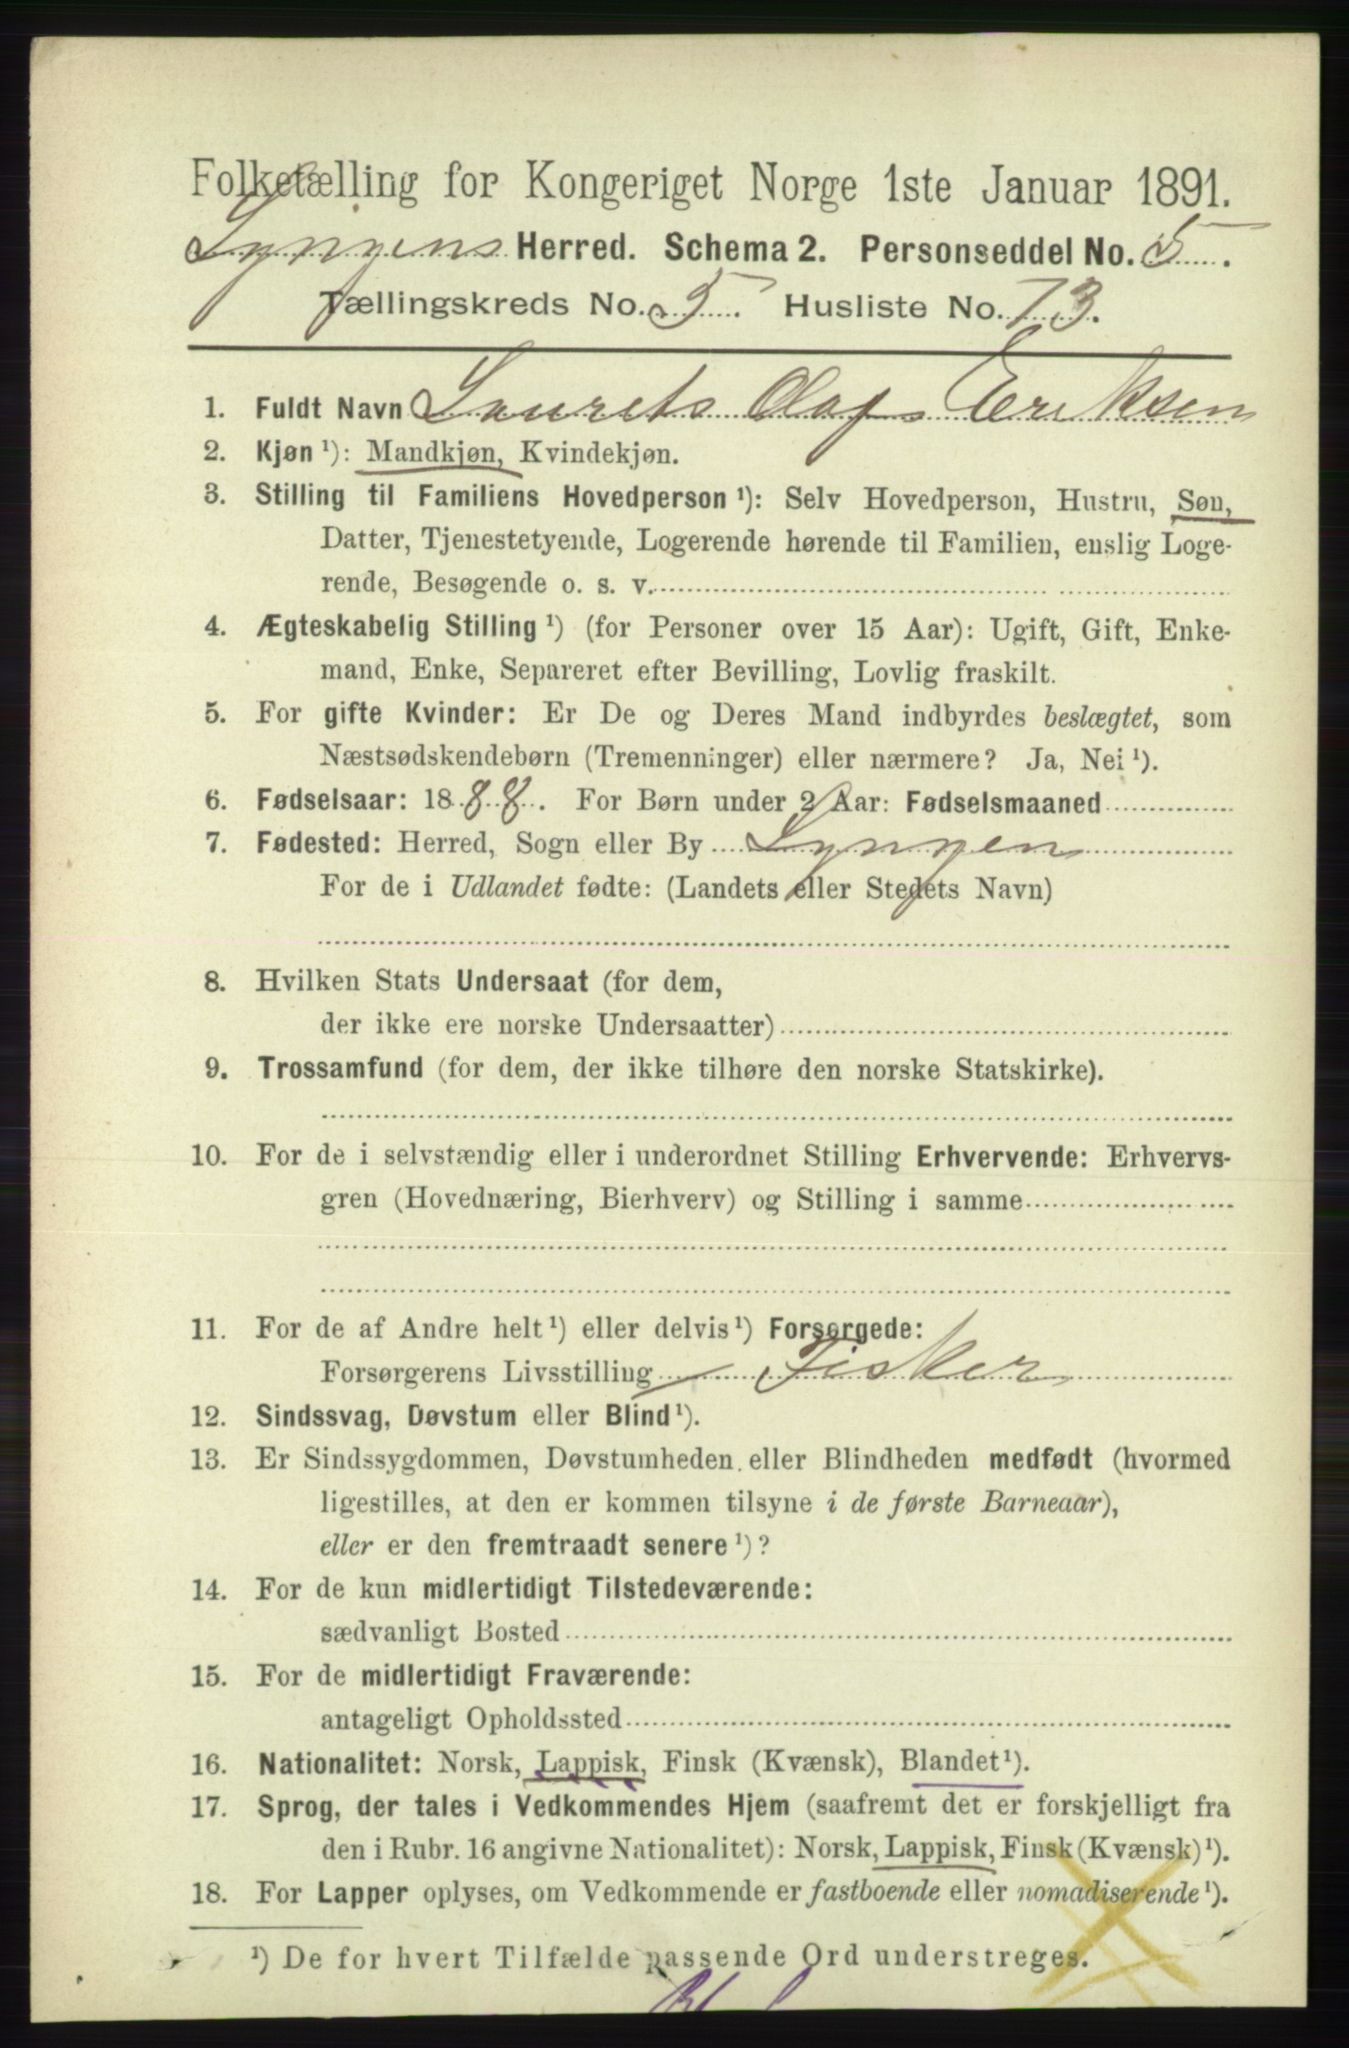 Folketælling for Kongeriget Norge 1ste Januar 1891.
Lyngens Herred. Schema 2. Personseddel No. 5.
Tællingskreds No. 5. Husliste No. 73.
1. Fuldt Navn Laurits Olaf Eriksen
2. Kjøn ¹): Mandkjøn, Kvindekjøn.
3. Stilling til Familiens Hovedperson ¹): Selv Hovedperson, Hustru, Søn,
Datter, Tjenestetyende, Logerende hørende til Familien, enslig Loge-
rende, Besøgende o. s. v.
4. Ægteskabelig Stilling ¹) (for Personer over 15 Aar): Ugift, Gift, Enke-
mand, Enke, Separeret efter Bevilling, Lovlig fraskilt.
5. For gifte Kvinder: Er De og Deres Mand indbyrdes beslægtet, som
Næstsødskendebørn (Tremenninger) eller nærmere? Ja, Nei ¹).
6. Fødselsaar: 1888. For Børn under 2 Aar: Fødselsmaaned
7. Fødested: Herred, Sogn eller By Lyngen
For de i Udlandet fødte: (Landets eller Stedets Navn)
8. Hvilken Stats Undersaat (for dem,
der ikke ere norske Undersaatter)
9. Trossamfund (for dem, der ikke tilhøre den norske Statskirke).
10. For de i selvstændig eller i underordnet Stilling Erhvervende: Erhvervs-
gren (Hovednæring, Bierhverv) og Stilling i samme
11. For de af Andre helt ¹) eller delvis ¹) Forsørgede:
Forsørgerens Livsstilling Fisker
12. Sindssvag, Døvstum eller Blind ¹).
13. Er Sindssygdommen, Døvstumheden eller Blindheden medfødt (hvormed
ligestilles, at den er kommen tilsyne i de første Barneaar),
eller er den fremtraadt senere ¹)?
14. For de kun midlertidigt Tilstedeværende:
sædvanligt Bosted
15. For de midlertidigt Fraværende:
antageligt Opholdssted
16. Nationalitet: Norsk, Lappisk, Finsk (Kvænsk), Blandet ¹).
17. Sprog, der tales i Vedkommendes Hjem (saafremt det er forskjelligt fra
den i Rubr. 16 angivne Nationalitet): Norsk, Lappisk, Finsk (Kvænsk) ¹).
18. For Lapper oplyses, om Vedkommende er fastboende eller nomadiserende ¹).
¹) De for hvert Tilfælde passende Ord understreges.